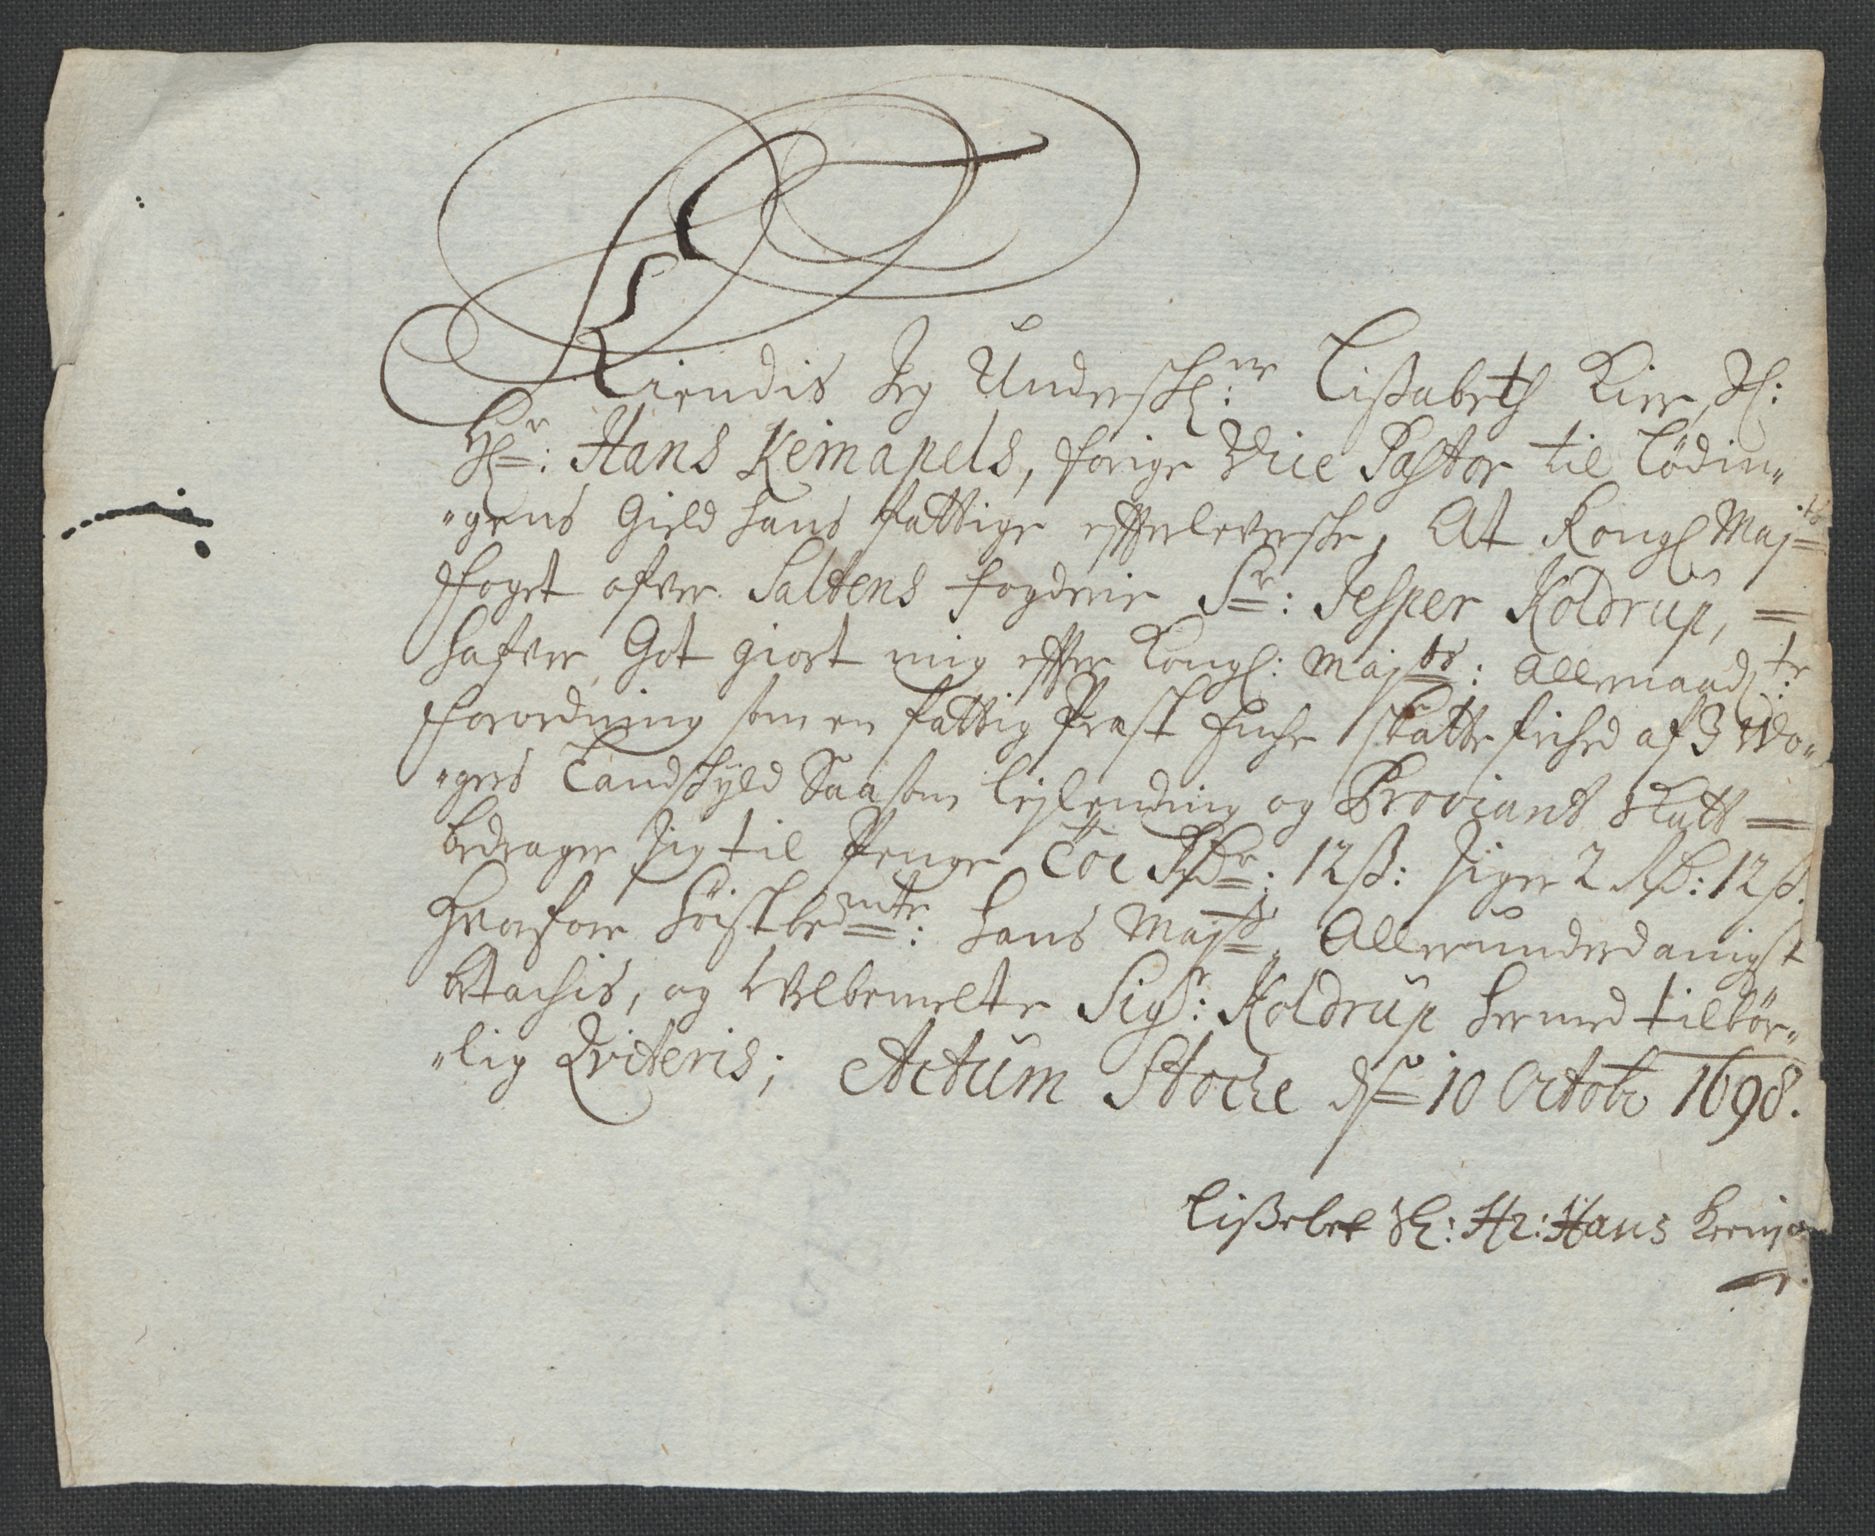 Kiendis Jeg Undersch:ne Lißabeth Kier, Sl:
Hr: Hans Kemapels, forige Vice Pastor til Lödin„
„gens Gield hans fattige effterleversche, At Kongl Majts
Foget ofver Saltens fogderie Sr: Jesper Koldrup, =
hafver Got giort mig effter Kongl: Majts: Allernaadte:
Forordning som en fattig Præst Enche skatte frihed af 3 Wo„
„gers Landschyld Saasom Leylending og Proviant Skatt =
bedrager sig til Penge Toe Rdr: 12ß: siger 2 Rd: 12ß.
Hvorfore höistbemte: hans Majt Allerunderdanigst
betachis, og Velbemelte Sigr: Koldrup hermed tilbör„
„lig Qviteris; Actum Stoche dn 10 Octobr 1698.
Lißebet Sl: Hr: Hans